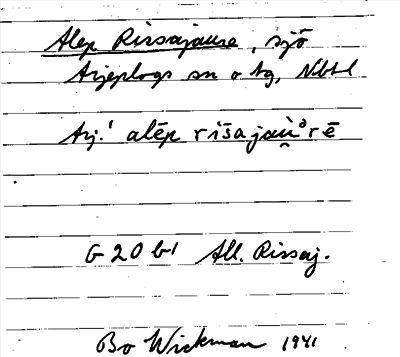 Alep Rissajaure, sjö
Arjeplogs sn o tg, Nbtl
Arj.' alēp rīšajau̯ᵒrē
G 20 b1 All. Rissaj.
Bo Wickman 1941